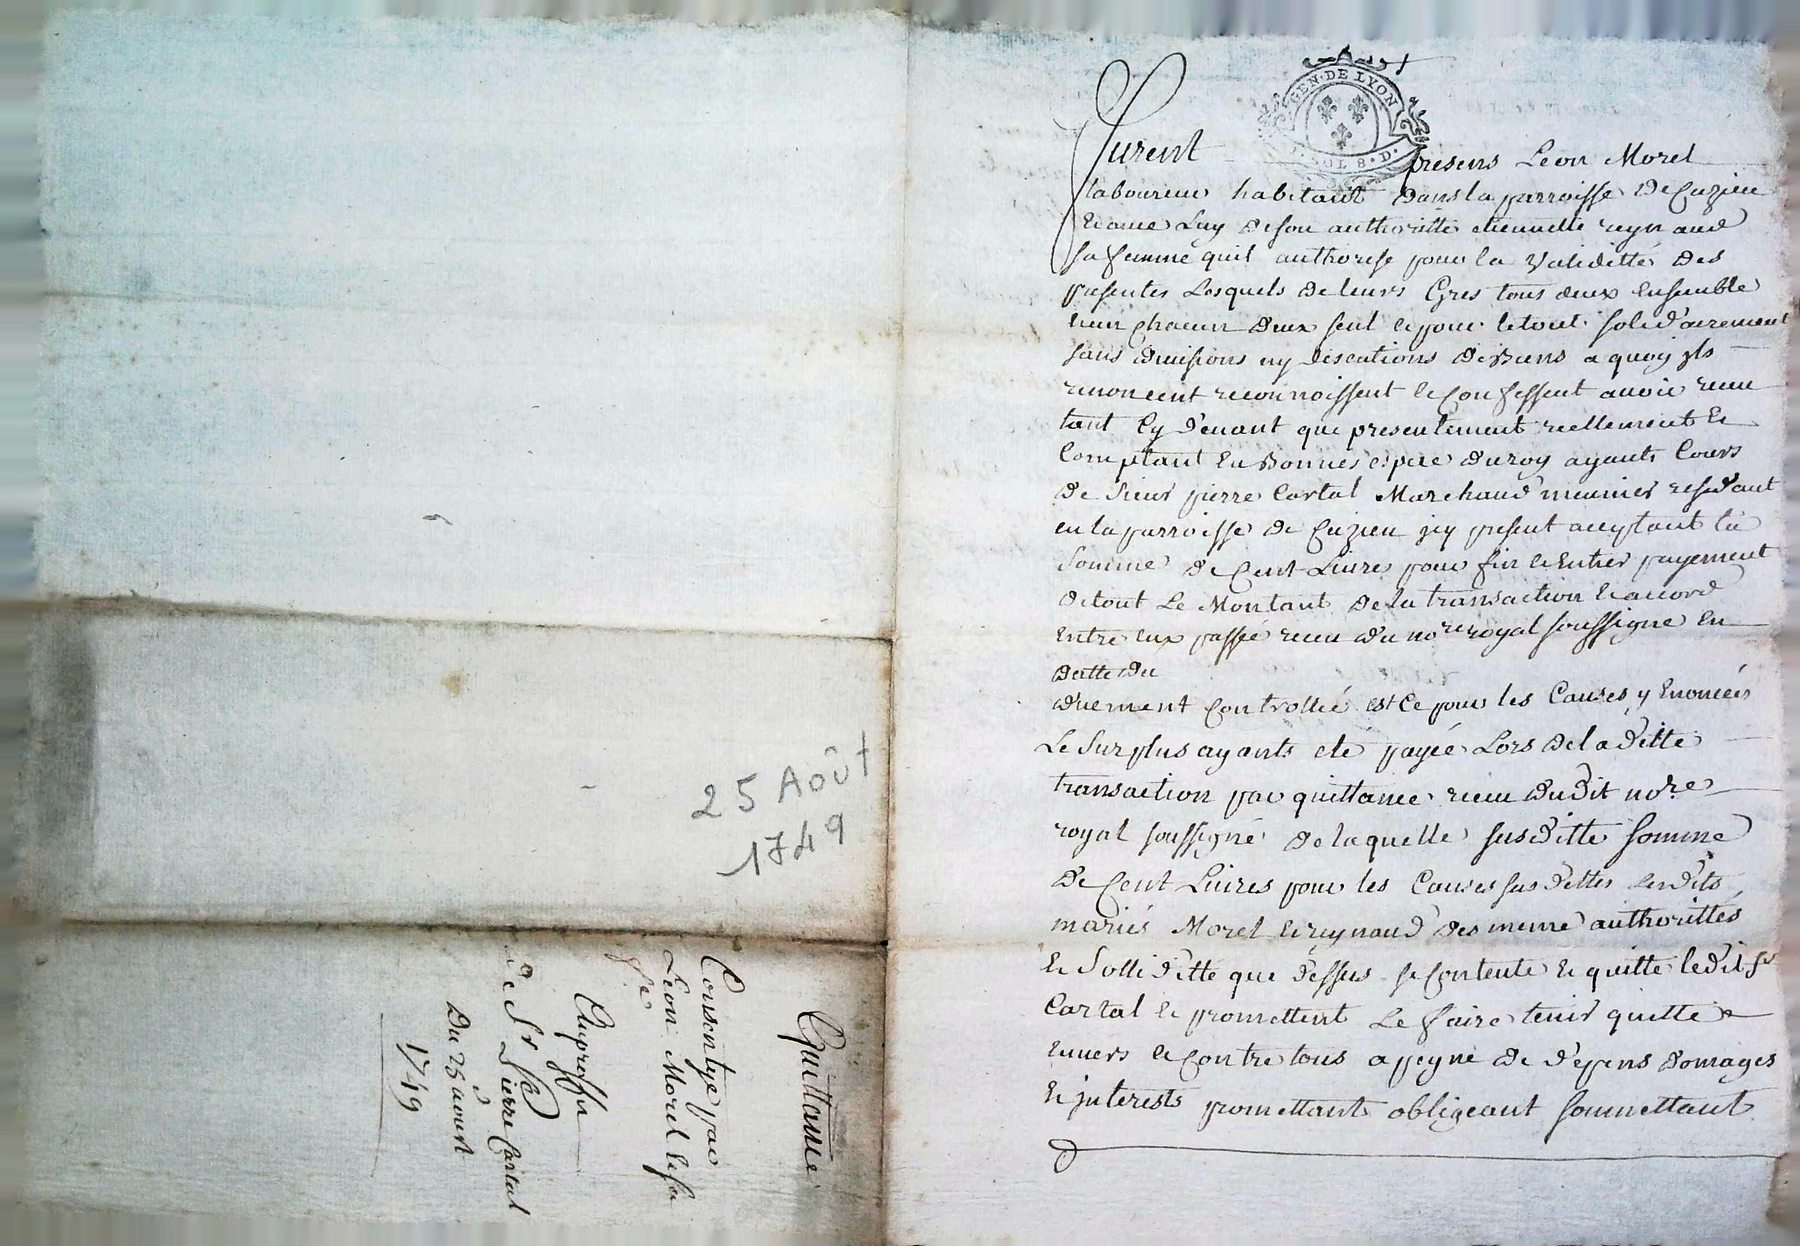 GEN · DE LYON
SOL 8 · D ·
furent presens Leon Morel
laboureur habitant dans la parroisse de Cuzieu
et avec Luy de son authoritté etiennette reynaud
sa femme quil authorise pour la validitté des
presentes Lesquels de leurs Grés tous deux ensemble
lun chacun deux seul et pour le tout solidairement
sans divisions ny discutions de Biens a quoy jls
renoncent reconnoissent et Confessent avoir receu
tant Cy devant que presentement reellement et
Comptant En Bonnes espece du roy ayants Cours
de sieur pierre Cartal Marchand meunier residant
en la parroisse de Cuzieu jcy present acceptant la
somme de Cent Livres pour fin et Entier payement
de tout Le Montant de la transaction et accord
Entre Eux passée receu du no.re royal soussigné En
datte du
duement Controllée est Ce pour les Causes y Enoncées
Le surplus ayants eté payée Lors de la ditte
transaction par quittance receu du dit no.re
royal soussigné de laquelle susditte somme
de Cent Livres pour les Causes sus dittes lesdits
mariés Morel et reynaud des meme authorittés
et solliditté que dessus se Contente et quitte ledit Sr
Cartal et promettent Le faire tenir quitte
Envers et Contre tous a peyne de depens domages
et jnterests promettants obligeant soumettant
25 Août
1749
Quittance
Consentye par
Leon Morel et sa
fe
Au proffit
de Sr Pierre Cartal
Du 25 aoust
1749